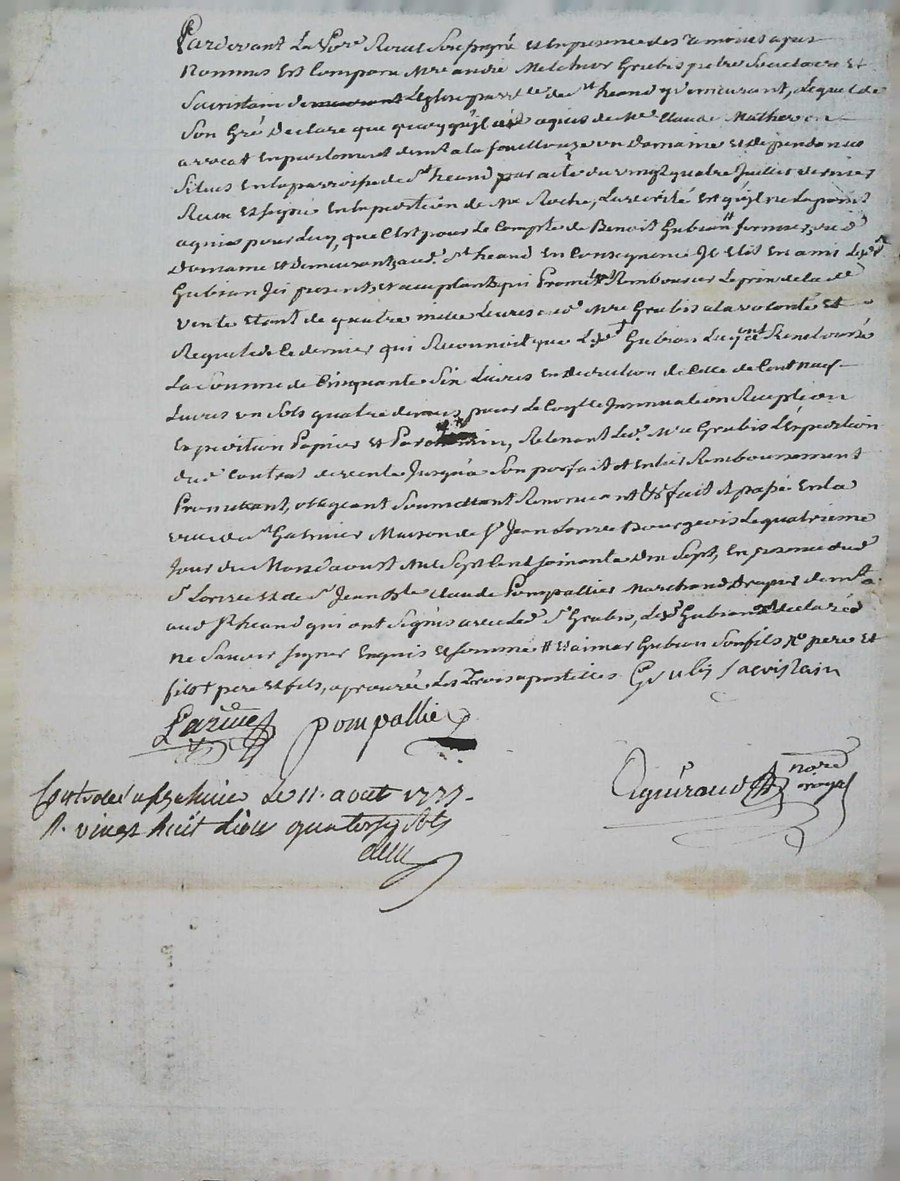 Pardevant Le No.re Royal Soussigné et en presence des temoins apres
Nommés est Comparu M.re andré Melchior Grubis pretre Societaire et
Sacristain de L'eglise parr.lle de S.t heand y demeurant, Lequel de
Son Gré Declare que quoyqu'il aye aquis de M.e Claude Matheron
avocat en parlement dem.t a la fouillouze un Domaine et dependances
Situés en la parroisse de S.t heand par acte du vingt quatre Juillet dernier
Reçu et signé en l'expedition de M.e Roche, La verité est qu'il ne l'a point
aquis pour Luy, que C'est pour le Compte de Benoit Gubian # fermier du d.
Domaine et demeurant aud. S.t heand en Consequence Il elit en ami Le d.
Gubian Ici present et acceptant qui Promet Rembourser Le prix de la de
vente étant de quatre mille Livres aud. M.re Grubis a la volonté et
Requete de Ce dernier qui Reconnoit que Led. Gubian Luy ont Remboursé
La Somme de Cinquante Six Livres en deduction de Celle de Cent neuf
Livres un Sols quatre deniers pour Le Controlle Insinuation Reception
expedition Papier et Parchemin, Retenant Led. M.re Grubis L'expedition
dud. Contrat de vente Jusqu'a Son parfait et entier Remboursement
Promettant, obligeant Soumettant Renonçant &c fait et passé en la
ville de S.t Galmier Maison de S.r Jean Bourgeois Le quatrieme
Jour du Mois d'aoust Mil Sept Cent Soixante Dix Sept, en presence dud.
S.r et de S.r Jean B.te Claude Pompallier Marchand Drapier dem.t
aud. S.t heand qui ont Signés avec Led. S.r Grubis, Led. Gubian a declaré
ne Savoir Signer enquis et Sommé # et aimar Gubian Son fils pere et
fils + pere et fils, aprouvé Les trois apostilles Grubis Sacristain
pompallier
Aguiraud no.re royal
Controlé a S.t Galmier Le 11. aout 1777.
R. vingt huit Livres quatorze Sols